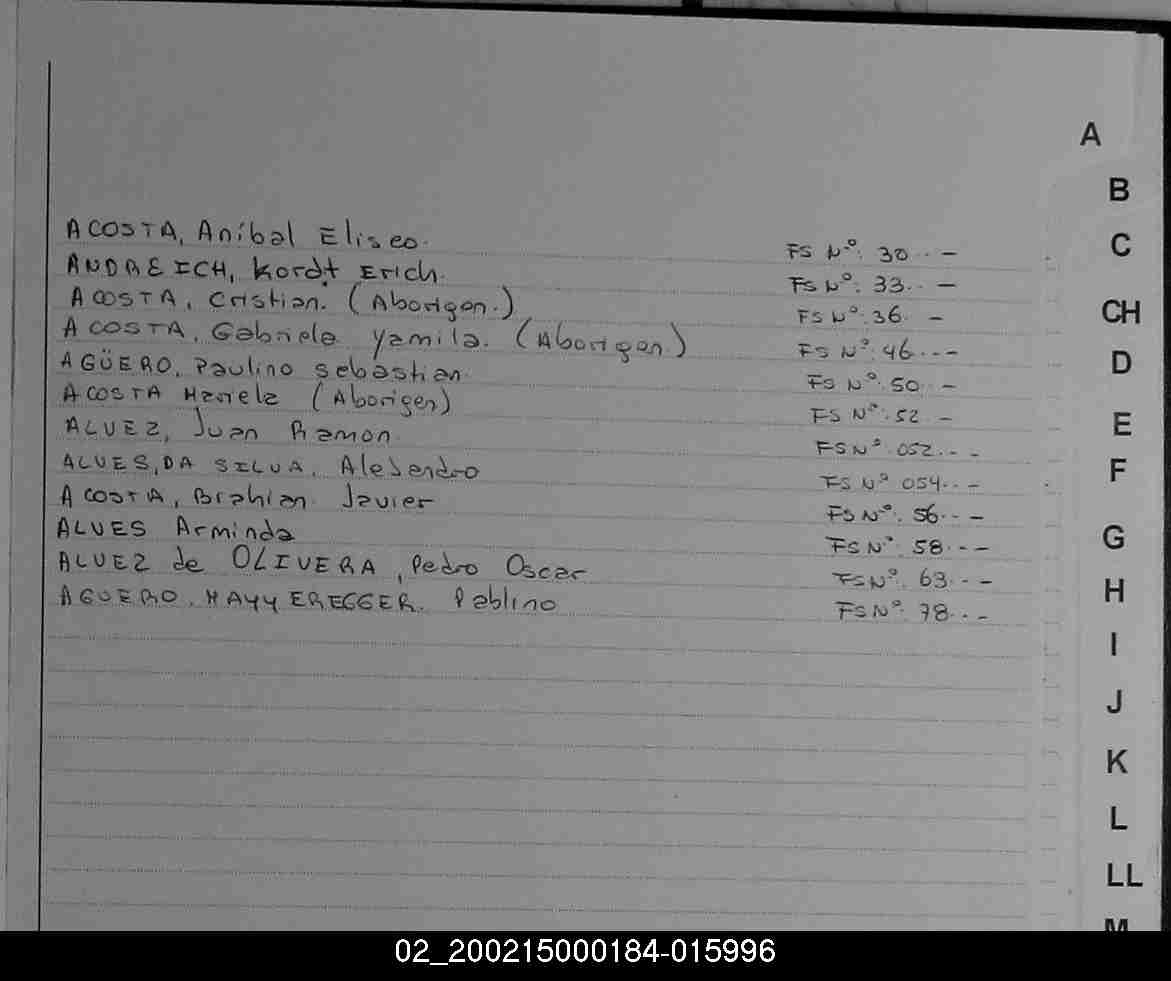 A
B
C
CH
D
E
F
G
H
I
J
K
L
LL
M
ACOSTA, Aníbal Eliseo. FS Nº: 30..-
ANDREICH, Kordt Erich. FS Nº: 33..-
ACOSTA, Cristian. (Aborigen.) FS Nº: 36. -
ACOSTA, Gabriela Yamila. (Aborigen.) FS Nº. 46...-
AGÜERO, Paulino Sebastian. FS Nº. 50..-
ACOSTA Mariela (Aborigen) FS Nº. 52.-
ALVEZ, Juan Ramon. FS Nº. 052...-
ALVES, DA SILVA, Alejandro FS Nº 054...-
ACOSTA, Brahian Javier FS Nº. 56...-
ALVES Arminda FS Nº. 58...-
ALVEZ de OLIVERA, Pedro Oscar FS Nº. 63...-
AGUERO. MAYYEREGGER. Pablino FS Nº. 78...-
02_200215000184-015996